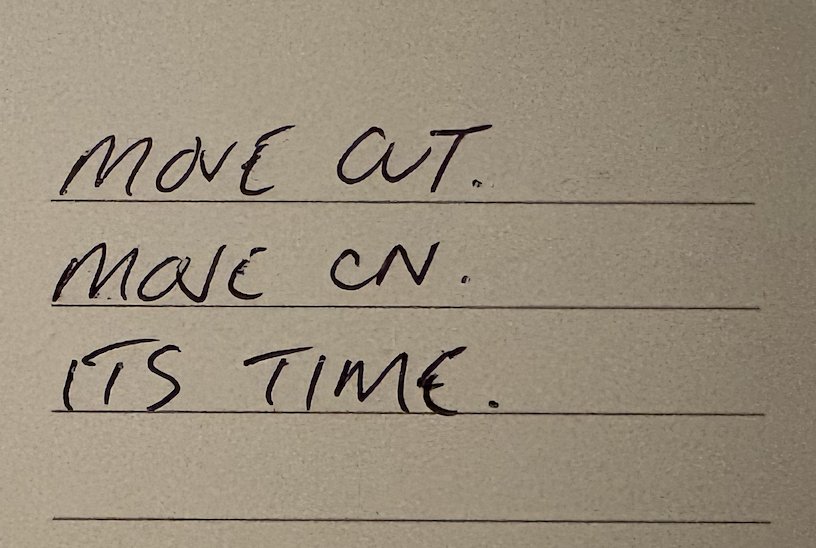 MOVE OUT.
MOVE ON.
ITS TIME.